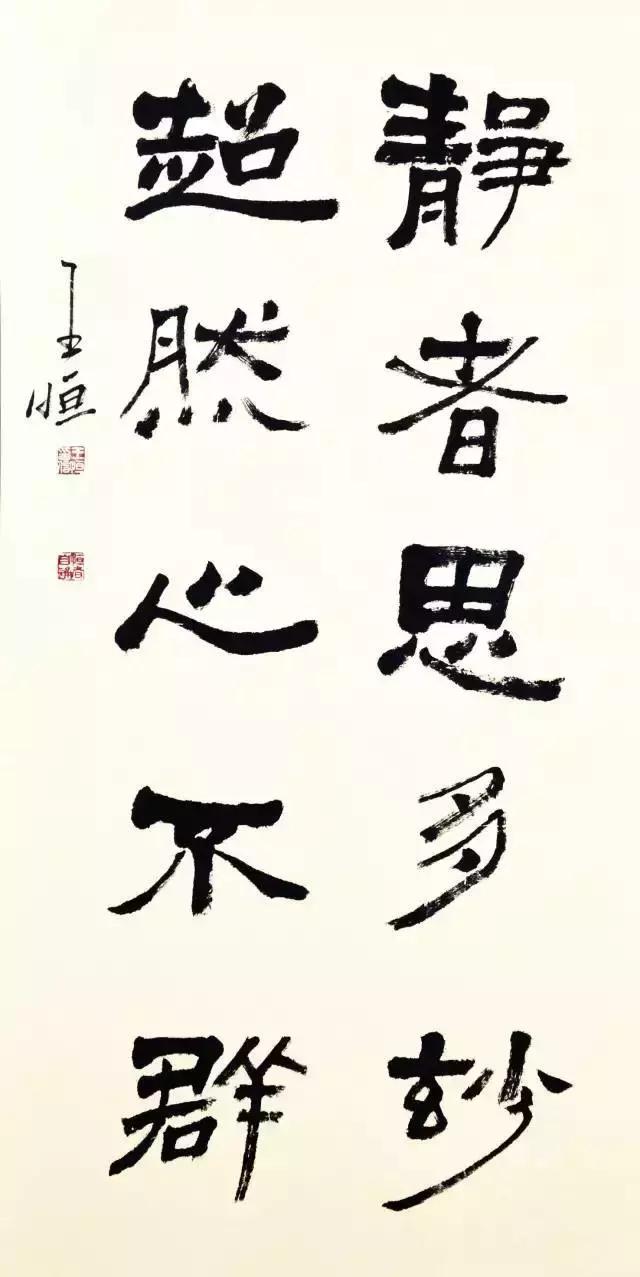 静者思多玅
超然心不群
王恒